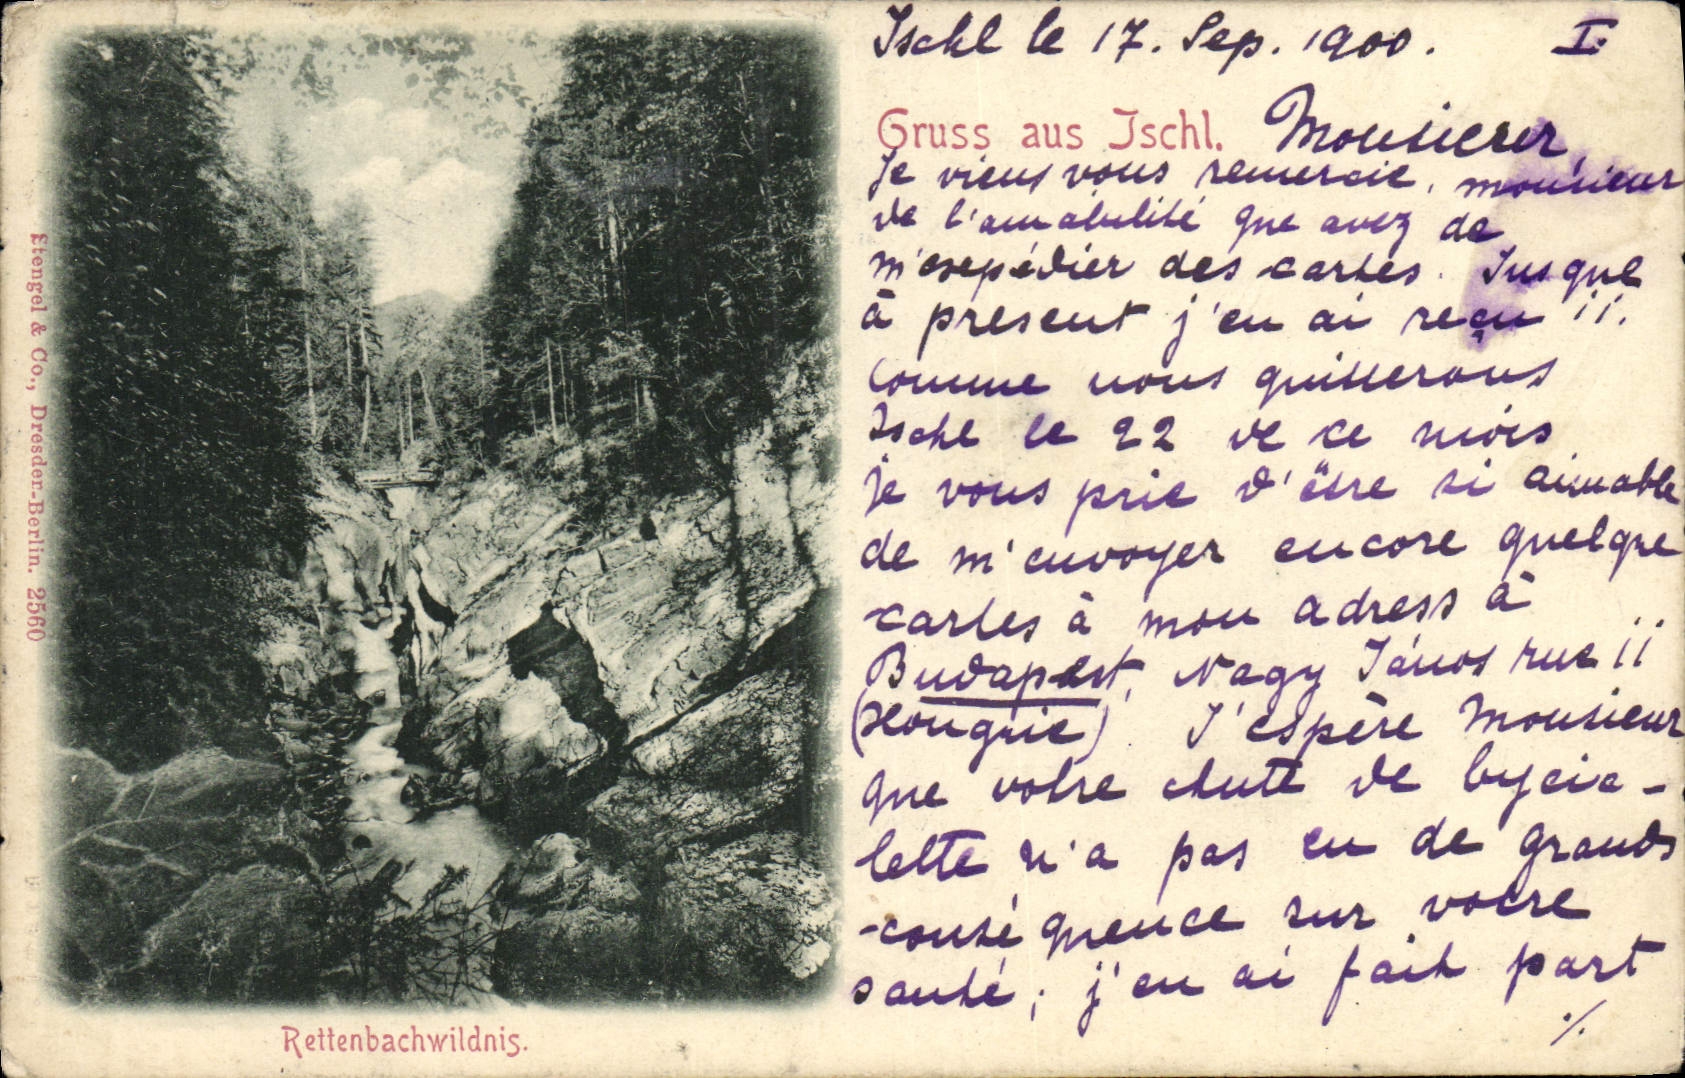 Ischl le 17. Sep. 1900.
I.
Gruss aus Ischl.
Monsieur,
Je viens vous remercie, monsieur
de l'amabilité que avez de
m'exepédier des cartes. Jusque
à present j'en ai reçu 11.
Comme nous quitterons
Ischl le 22 de ce mois
je vous prie d'être si aimable
de m'envoyer encore quelque
cartes à mon adress à
Budapest, Nagy János rue 11
(Hongrie) J'espère Monsieur
que votre chute de bycic-
lette n'a pas eu de grands
conséquence sur votre
santé; j'en ai fait part
./.
Stengel & Co., Dresden-Berlin. 2560
Rettenbachwildnis.